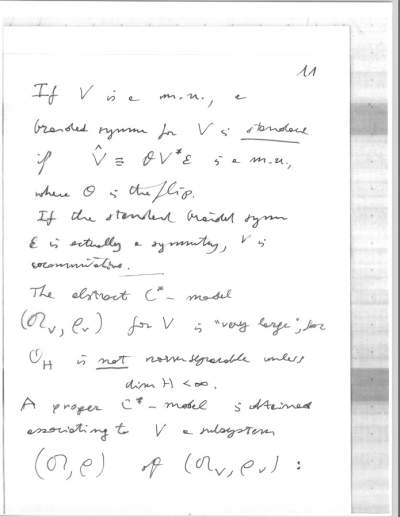 11
If V is a m.u., a
braided symm for V is standard
if V̂ ≡ θV*ε is a m.u.,
where θ is the flip.
If the standard braided symm
ε is actually a symmetry, V is
cocommutative.
The abstract C*-model
(𝒪_V, ρ_V) for V is "very large", for
𝒪_H is not nonseparable unless
dim H < ∞.
A proper C*-model is obtained
associating to V a subsystem
(𝒪, ρ) of (𝒪_V, ρ_V) :